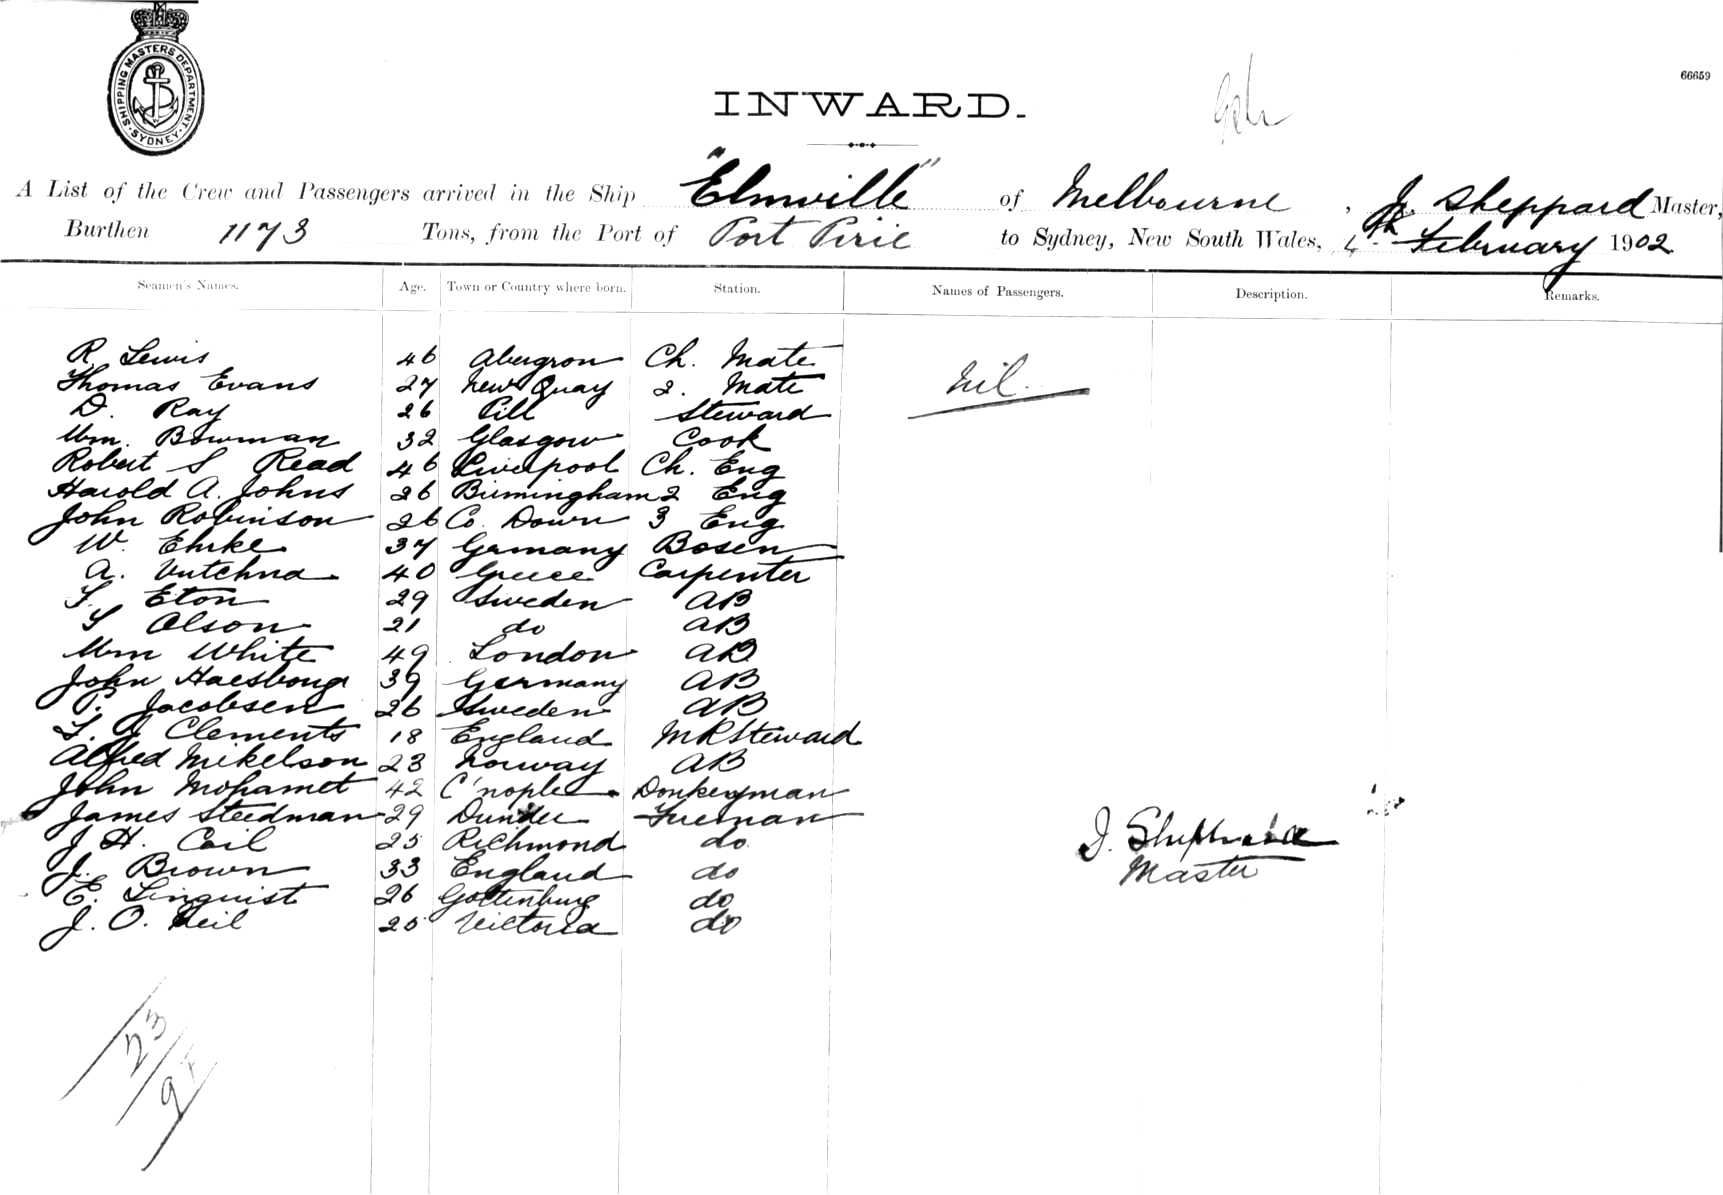 SHIPPING MASTERS DEPARTMENT · SYDNEY ·
66659
INWARD.
A List of the Crew and Passengers arrived in the Ship "Elmville" of Melbourne, J. Sheppard Master,
Burthen 1173 Tons, from the Port of Port Pirie to Sydney, New South Wales, 4th February 1902
Seamen's Names. Age. Town or Country where born. Station. Names of Passengers. Description. Remarks.
R. Lewis 46 Abergron Ch. Mate
Nil.
Thomas Evans 27 New Quay 2. Mate
D. Ray 26 Pill Steward
Wm. Bowman 32 Glasgow Cook
Robert S Read 46 Liverpool Ch. Eng
Harold A. Johns 26 Birmingham 2 Eng
John Robinson 26 Co. Down 3 Eng
W. Ehrke 37 Germany Bosen
A. Vutchna 40 Greece Carpenter
F. Eton 29 Sweden AB
Olson 21 do AB
Wm White 49 London AB
John 39 Germany AB
P. Jacobsen 26 Sweden AB
Clements 18 England MRSteward
Alfred Mikelson 23 Norway AB
John Mohamet 42 C'nople Donkeyman
James Stedman 29 Dundee Fireman
J H. Cail 25 Richmond do
J. Brown 33 England do
E. Linquist 26 Gottenburg do
J. O. Neil 25 Victoria do
J. Sheppard
Master
23